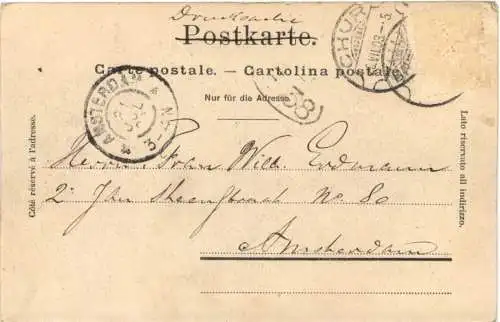 Drucksache
Postkarte.
Carte postale. – Cartolina postale.
Nur für die Adresse.
Côté réservé à l'adresse.
Lato riservato all indirizzo.
AMSTERDAM
CHUR
Herrn Wilh. Erdmann
2e Jan Steenstraat No. 80
Amsterdam